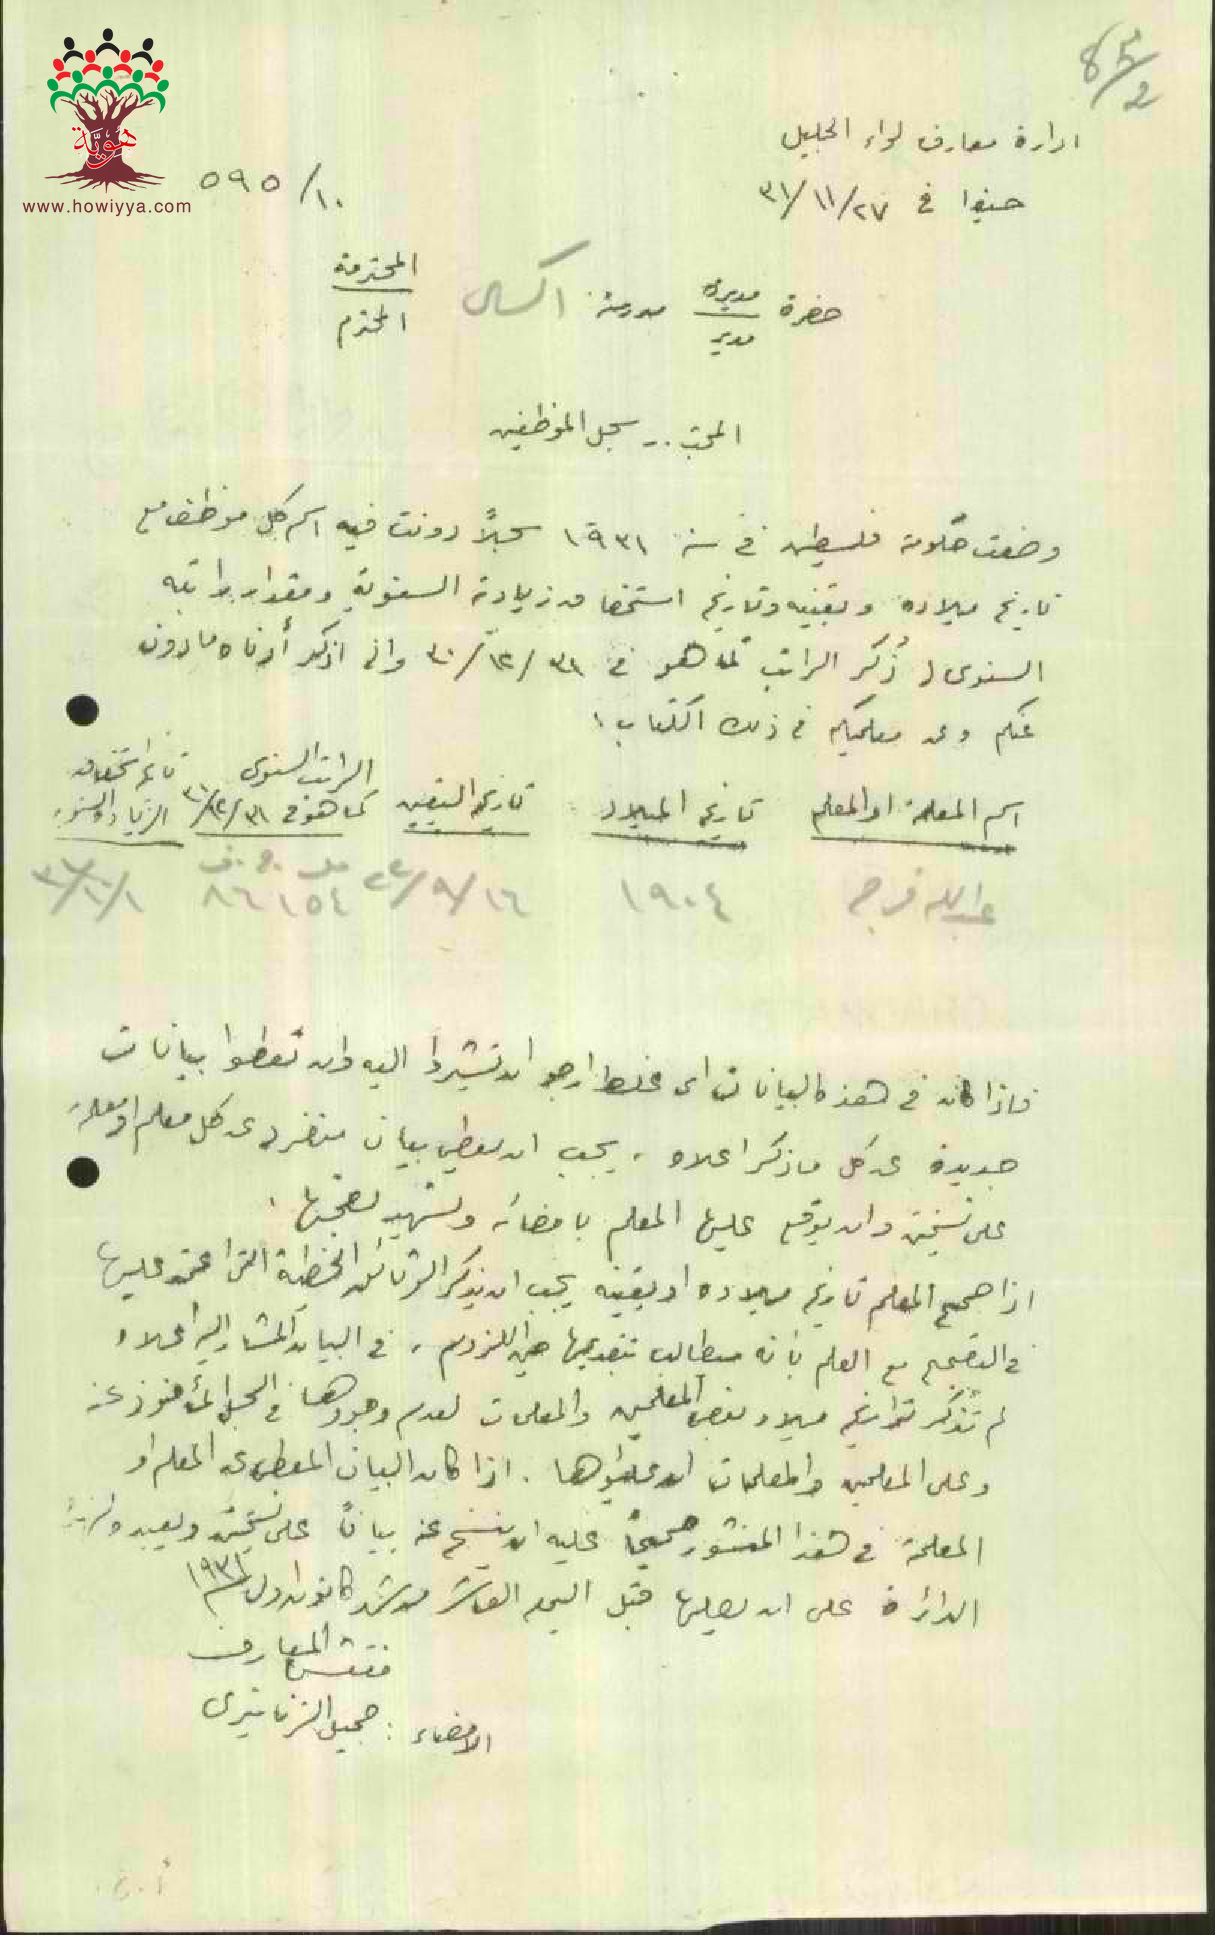 هويّة
www.howiyya.com
ادارة معارف لواء الجليل
حيفا في ٢٧/١١/٣١
٥٩٥/١٠
حضرة مديرة مدرسة اكسال المحترمة
مدير المحترم
سجل الموظفين
وضعت حكومة فلسطين في سنة ١٩٣١ سجلاً دونت فيه اسم كل موظف مع
تاريخ ميلاده وتعيينه وتاريخ استحقاقه زيادته السنوية ومقدار راتبه
السنوي ذُكر الراتب كما هو في ٣١/١٢/٣٠ واني اذكر أدناه ما دون
عنكم وعن معلميكم في ذلك الكتاب:
اسم المعلمة او المعلم
تاريخ الميلاد
تاريخ التعيين
الراتب السنوي
كما هو في ٣١/١٢/
تاريخ استحقاق
الزيادة السنوية
عبدالله فرج
١٩٠٤
١٦/٩/
ملس ج.ف
١٥٤ ٨٦
١/١٠/٣١
فاذا كان في هذه البيانات اي غلط ارجو ان تشيروا اليه وان تعطوا بيانات
جديدة عن كل ما ذكر اعلاه. يجب ان يعطى بيان منفرد عن كل معلم او معلمة
على نسختين وان يوقع عليها المعلم بامضائه وتشهد بصحتها.
اذا صحح المعلم تاريخ ميلاده او تعيينه يجب ان يذكر الوثائق الخطية التي اعتمد عليها
في التصحيح مع العلم بأنه سيطالب بتقديمها حين اللزوم. في البيان المشار اليه اعلاه
لم تُذكر تواريخ ميلاد بعض المعلمين والمعلمات لعدم وجودها في السجل المأخوذ عنه
وعلى المعلمين والمعلمات ان يملؤوها. اذا كان البيان المعطى عن المعلم او
المعلمة في هذا المنشور صحيحاً فعليه ان ينسخ عنه بياناً على نسختين ويعيد
الدائرة على ان يصلها قبل اليوم العاشر من شهر كانون الاول سنة ١٩٣١
مفتش المعارف
الامضاء: جميل الزنانيري